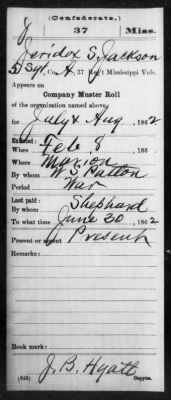 J
(Confederate.)
37 Miss.
Jeridox S. Jackson
5 Sgt, Co. A, 37 Reg't Mississippi Vols.
Appears on
Company Muster Roll
of the organization named above,
for July & Aug, 1862
Enlisted:
When Feb. 8, 186
Where Marion
By whom W. S. Patton
Period War
Last paid:
By whom Shephard
To what time June 30, 1862
Present or absent Present
Remarks:
Book mark:
J. B. Hyatt
(642) Copyist.